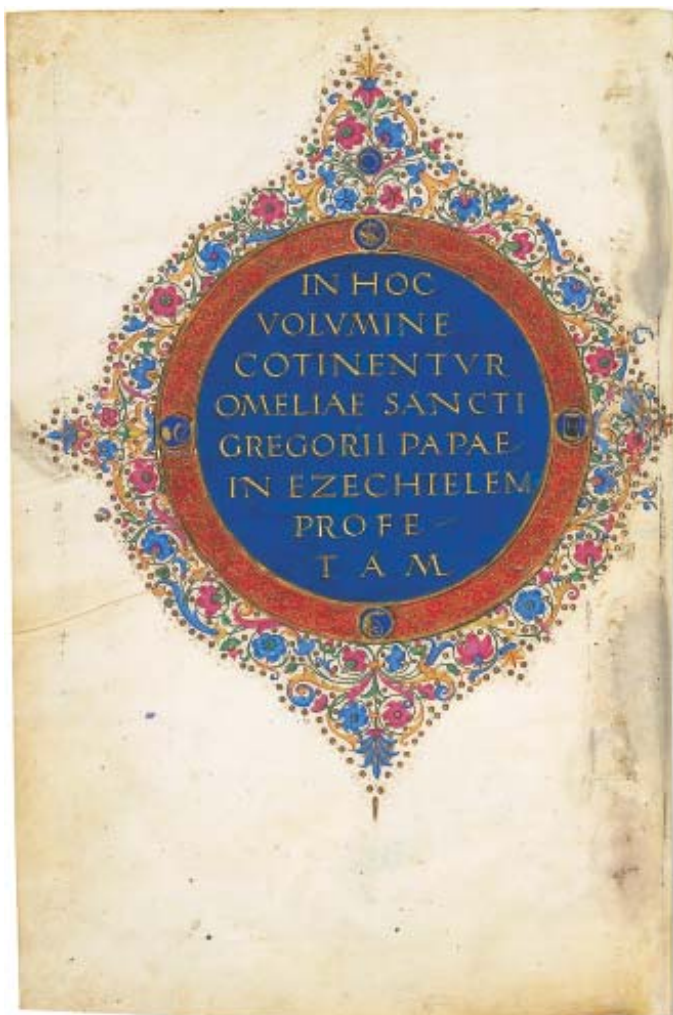 IN HOC
VOLVMINE
COTINENTVR
OMELIAE SANCTI
GREGORII PAPAE
IN EZECHIELEM
PROFE-
TAM